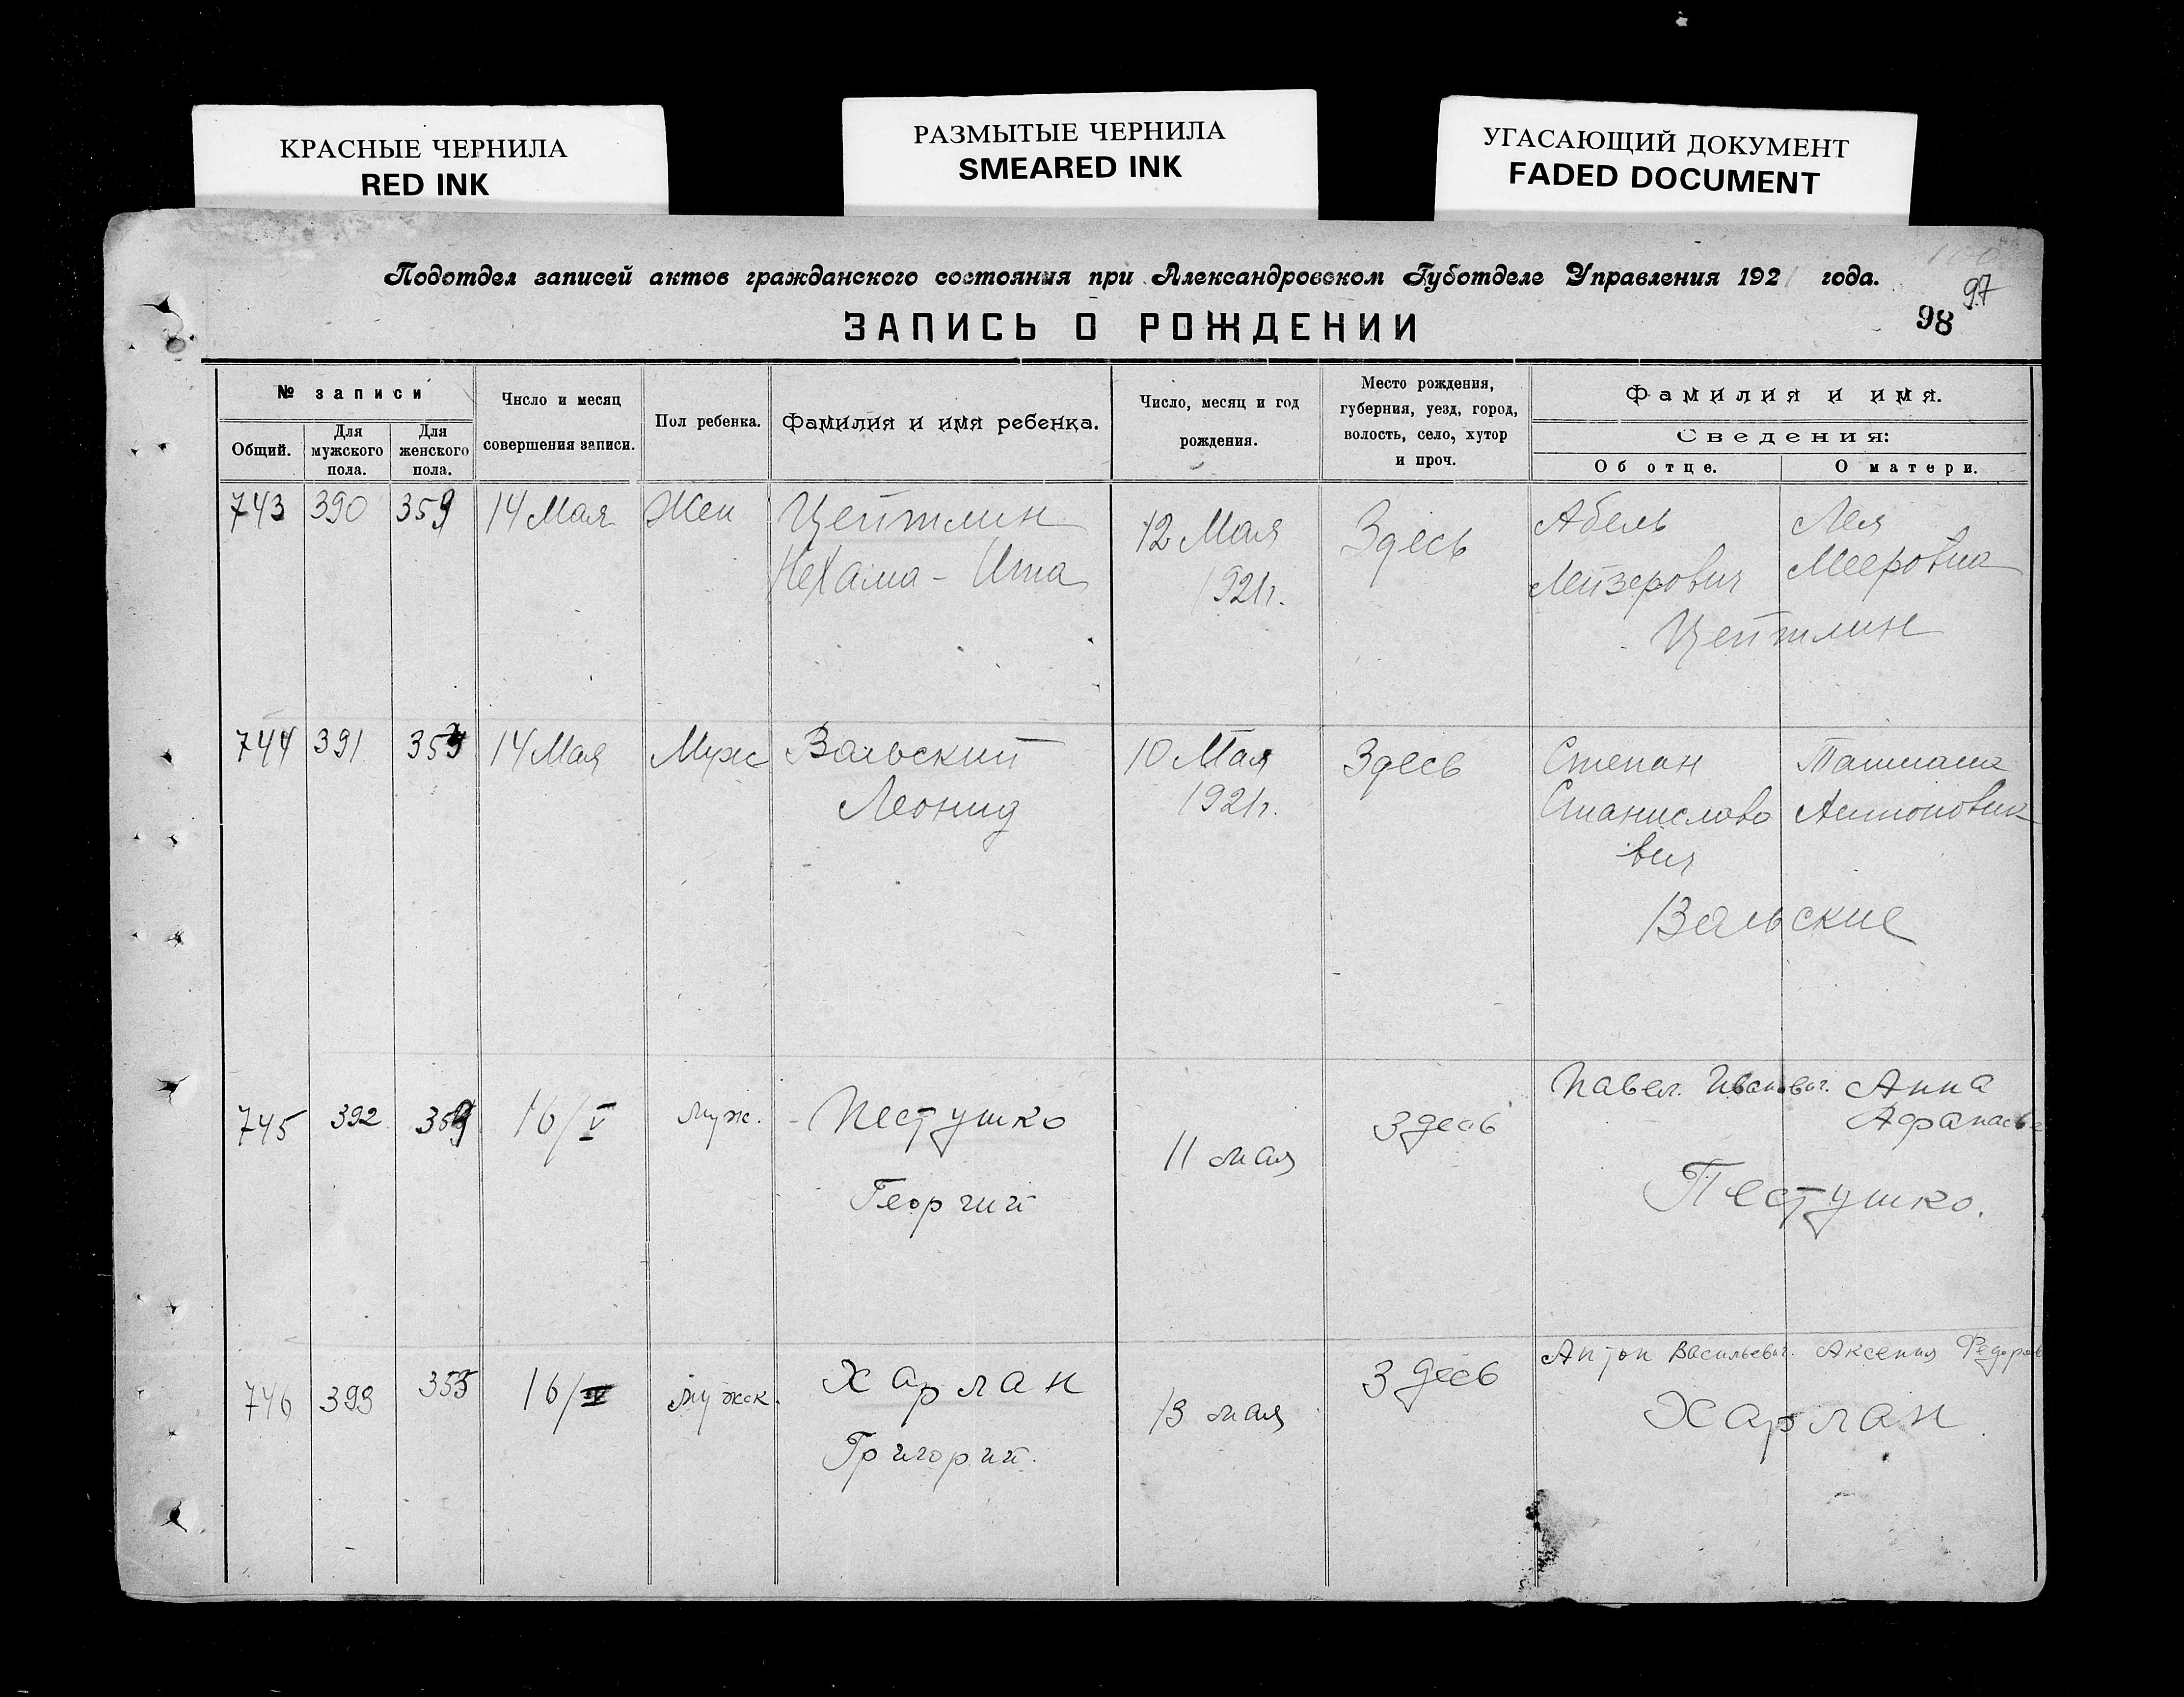 КРАСНЫЕ ЧЕРНИЛА
RED INK
РАЗМЫТЫЕ ЧЕРНИЛА
SMEARED INK
УГАСАЮЩИЙ ДОКУМЕНТ
FADED DOCUMENT
Подотдел записей актов гражданского состояния при Александровском Губотделе Управления 192 года.
97
98
ЗАПИСЬ О РОЖДЕНИИ
№ записи
Общий.
Для мужского пола.
Для женского пола.
Число и месяц
совершения записи.
Пол ребенка.
Фамилия и имя ребенка.
Число, месяц и год
рождения.
Место рождения,
губерния, уезд, город,
волость, село, хутор
и проч.
Фамилия и имя.
Сведения:
Об отце.
О матери.
743 390 359 14 Мая Жен Цейтлин
Нехама - Ита
12 Мая
1921г.
Здесь
Абель
Лейзерович
Лея
Мееровна
Цейтлин
744 391 14 Мая Муж Вольский
Леонид
10 Мая
1921г.
Здесь
Степан
Станиславо
вич
Антоновна
Вольские
745 392 359 16/V муж. Пестушко
Георгий
11 мая
Здесь
Павел Иванович. Анна
Афанасье
Пестушко.
746 393 16/V мужск. Харлан
Григорий.
13 мая
Здесь
Антон Васильевич. Аксения Федоров
Харлан